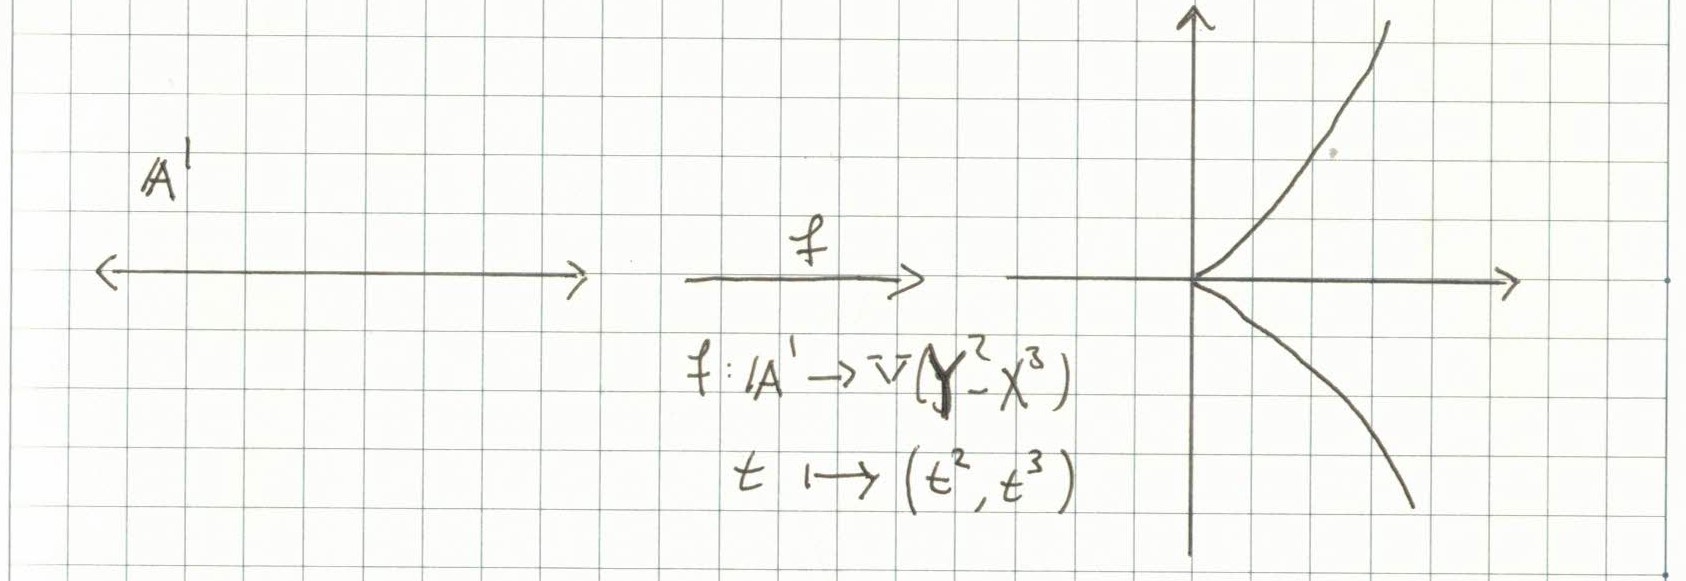 𝔸¹
f
f : 𝔸¹ → V(Y² - X³)
t ↦ (t², t³)